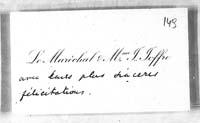 149
Le Maréchal & Mme J. Joffre
avec leurs plus sincères
félicitations.